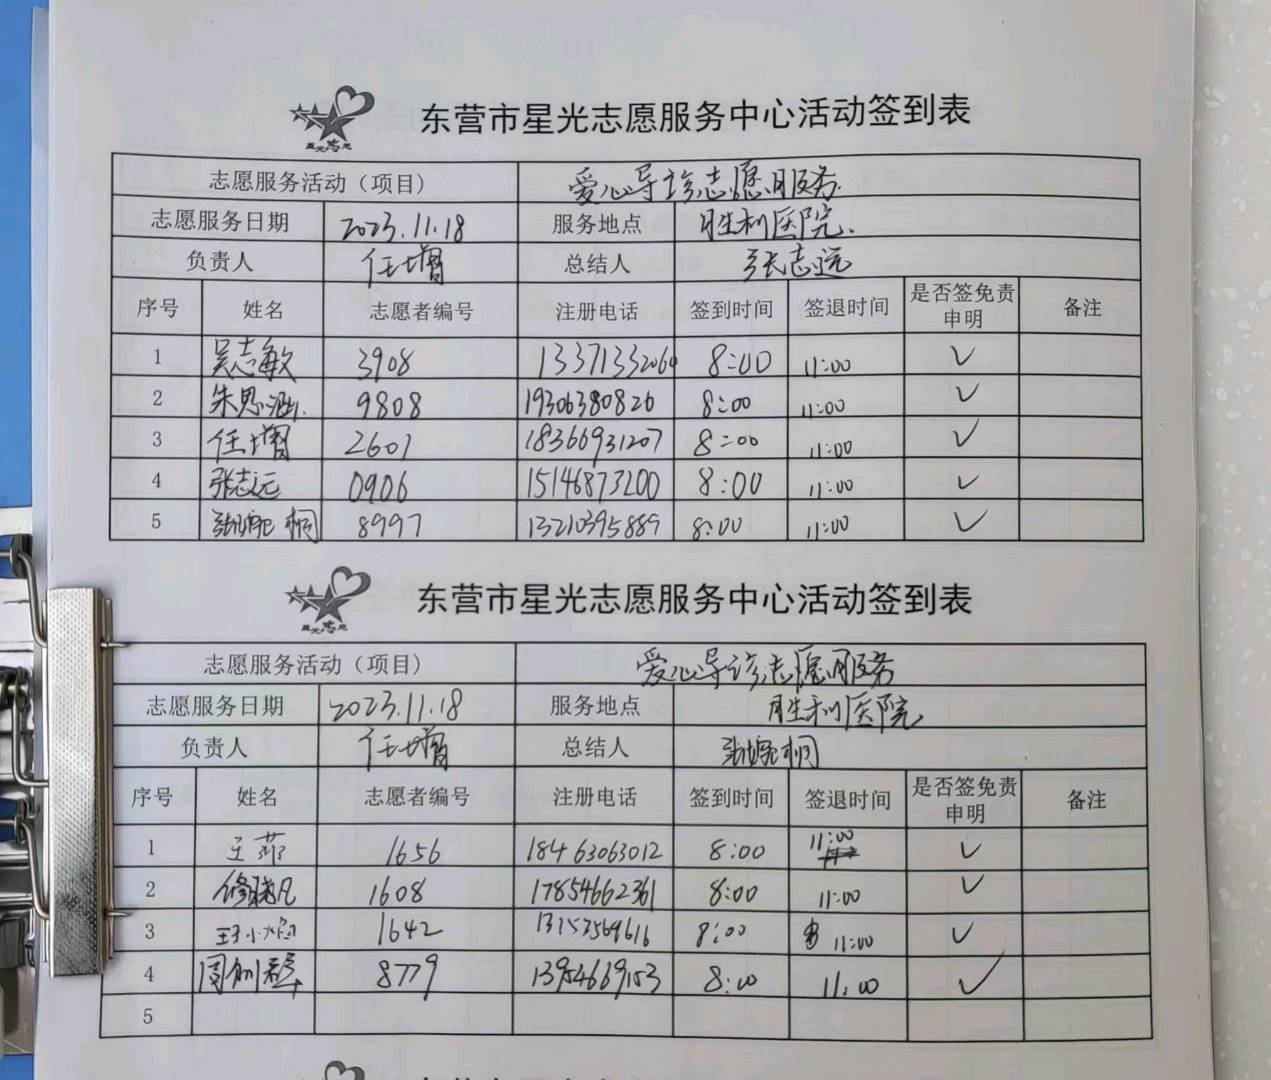 东营市星光志愿服务中心活动签到表
志愿服务活动（项目） 爱心导诊志愿服务
志愿服务日期 2023.11.18 服务地点 胜利医院.
负责人 任增 总结人 张志远
序号 姓名 志愿者编号 注册电话 签到时间 签退时间 是否签免责申明 备注
1 吴志敏 3908 13371332060 8:00 11:00 ✓
2 朱思涵 9808 19306380826 8:00 11:00 ✓
3 任增 2601 18366931207 8:00 11:00 ✓
4 张志远 0906 15146873200 8:00 11:00 ✓
5 桐 8997 13210395889 8:00 11:00 ✓
东营市星光志愿服务中心活动签到表
志愿服务活动（项目） 爱心导诊志愿服务
志愿服务日期 2023.11.18 服务地点 胜利医院
负责人 任增 总结人 桐
序号 姓名 志愿者编号 注册电话 签到时间 签退时间 是否签免责申明 备注
1 王菲 1656 18463063012 8:00 11:00 ✓
2 修晓凡 1608 17854662361 8:00 11:00 ✓
3 1642 8:00 11:00 ✓
4 周 8779 13954669153 8:00 11:00 ✓
5